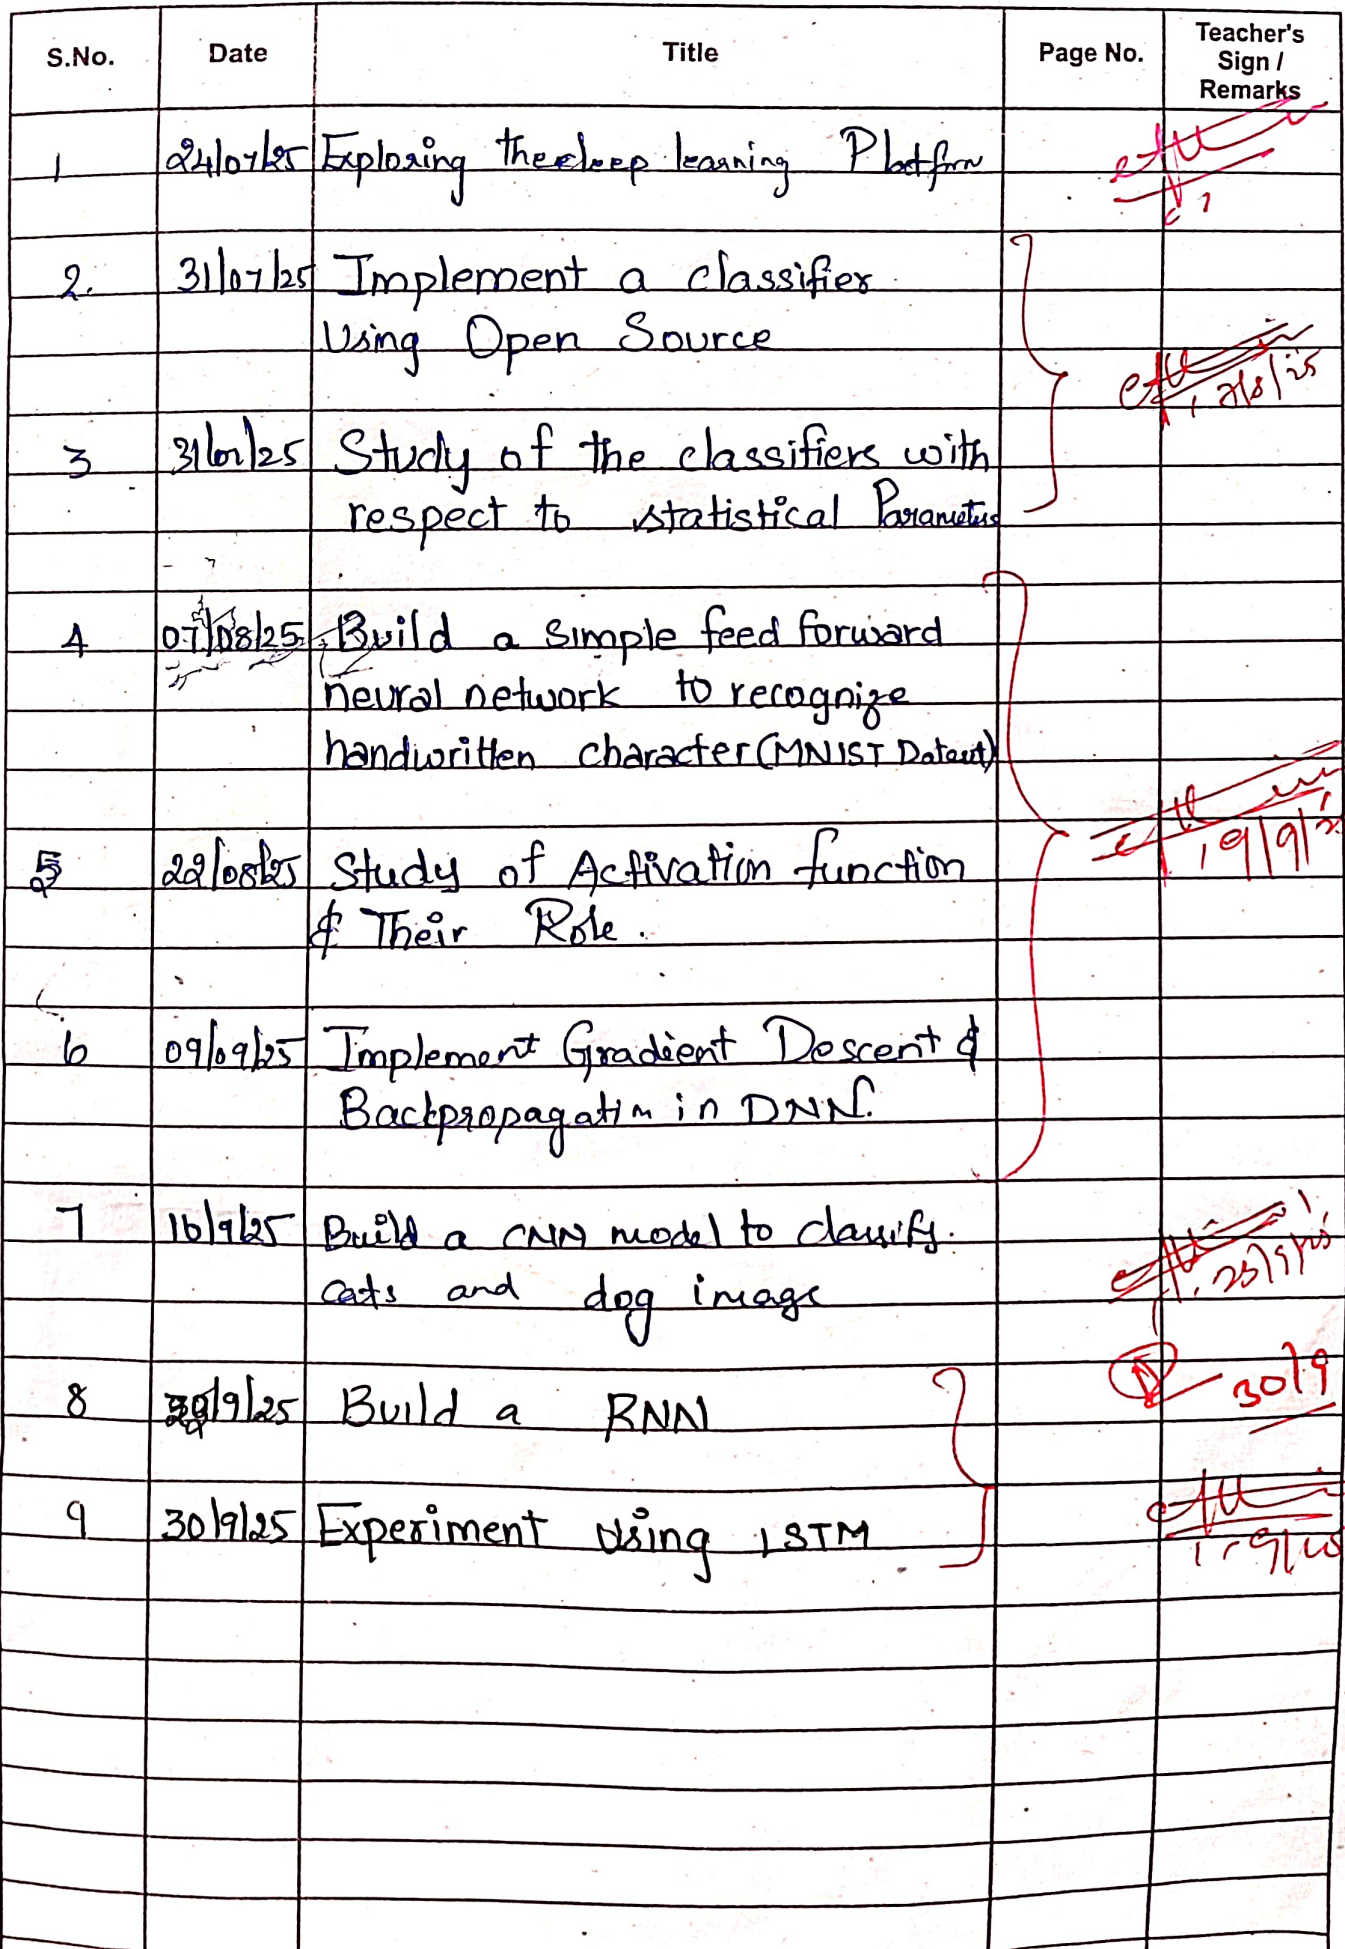 S.No. Date Title Page No. Teacher's Sign / Remarks
1 24/07/25 Exploring the deep learning Platform
2. 31/07/25 Implement a classifier
Using Open Source
3 31/07/25 Study of the classifiers with
respect to statistical Parameters
4 07/08/25 Build a simple feed forward
neural network to recognize
handwritten character (MNIST Dataset)
19/9/2
5 22/08/25 Study of Activation function
& Their Role.
6 09/09/25 Implement Gradient Descent &
Backpropagation in DNN.
7 16/9/25 Build a CNN model to classify.
cats and dog image
30/9
8 /9/25 Build a RNN
9 30/9/25 Experiment Using LSTM